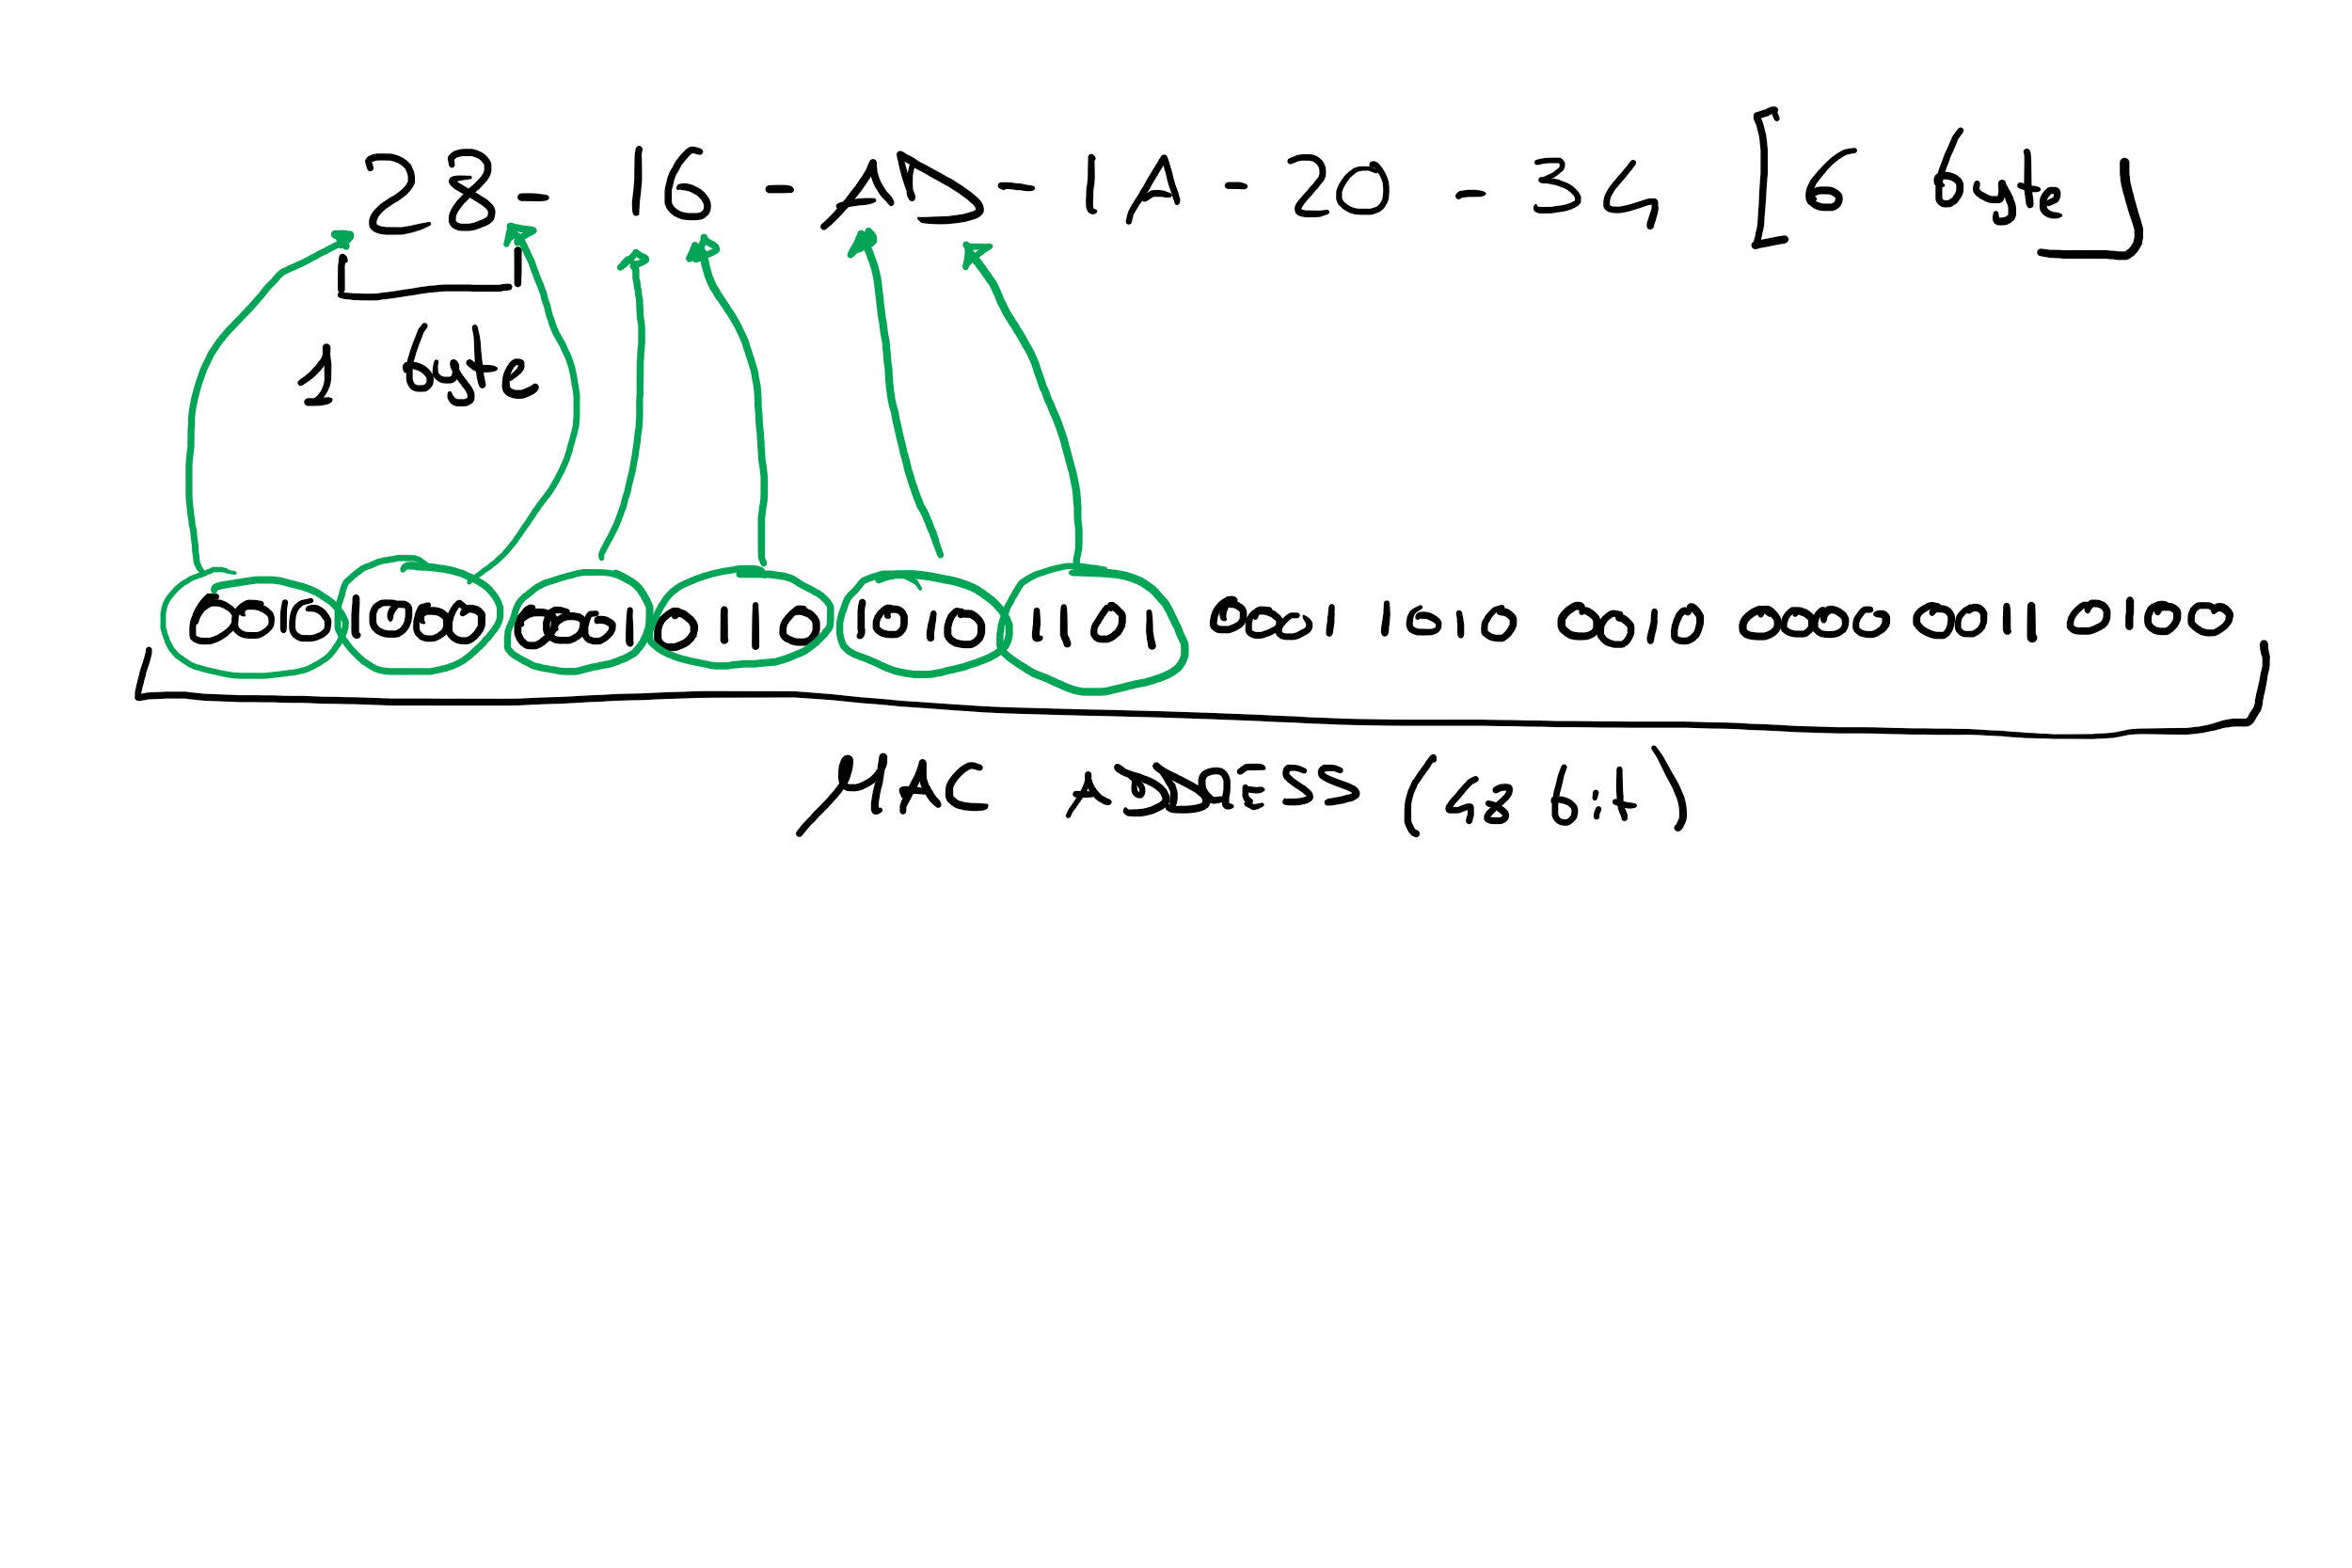 28-16-AD-1A-20-34 [6 byte]
1 byte
0010 1000 0001 0110 1010 1101 0001 1010 0010 0000 0011 0100
MAC ADDRESS (48 bit)